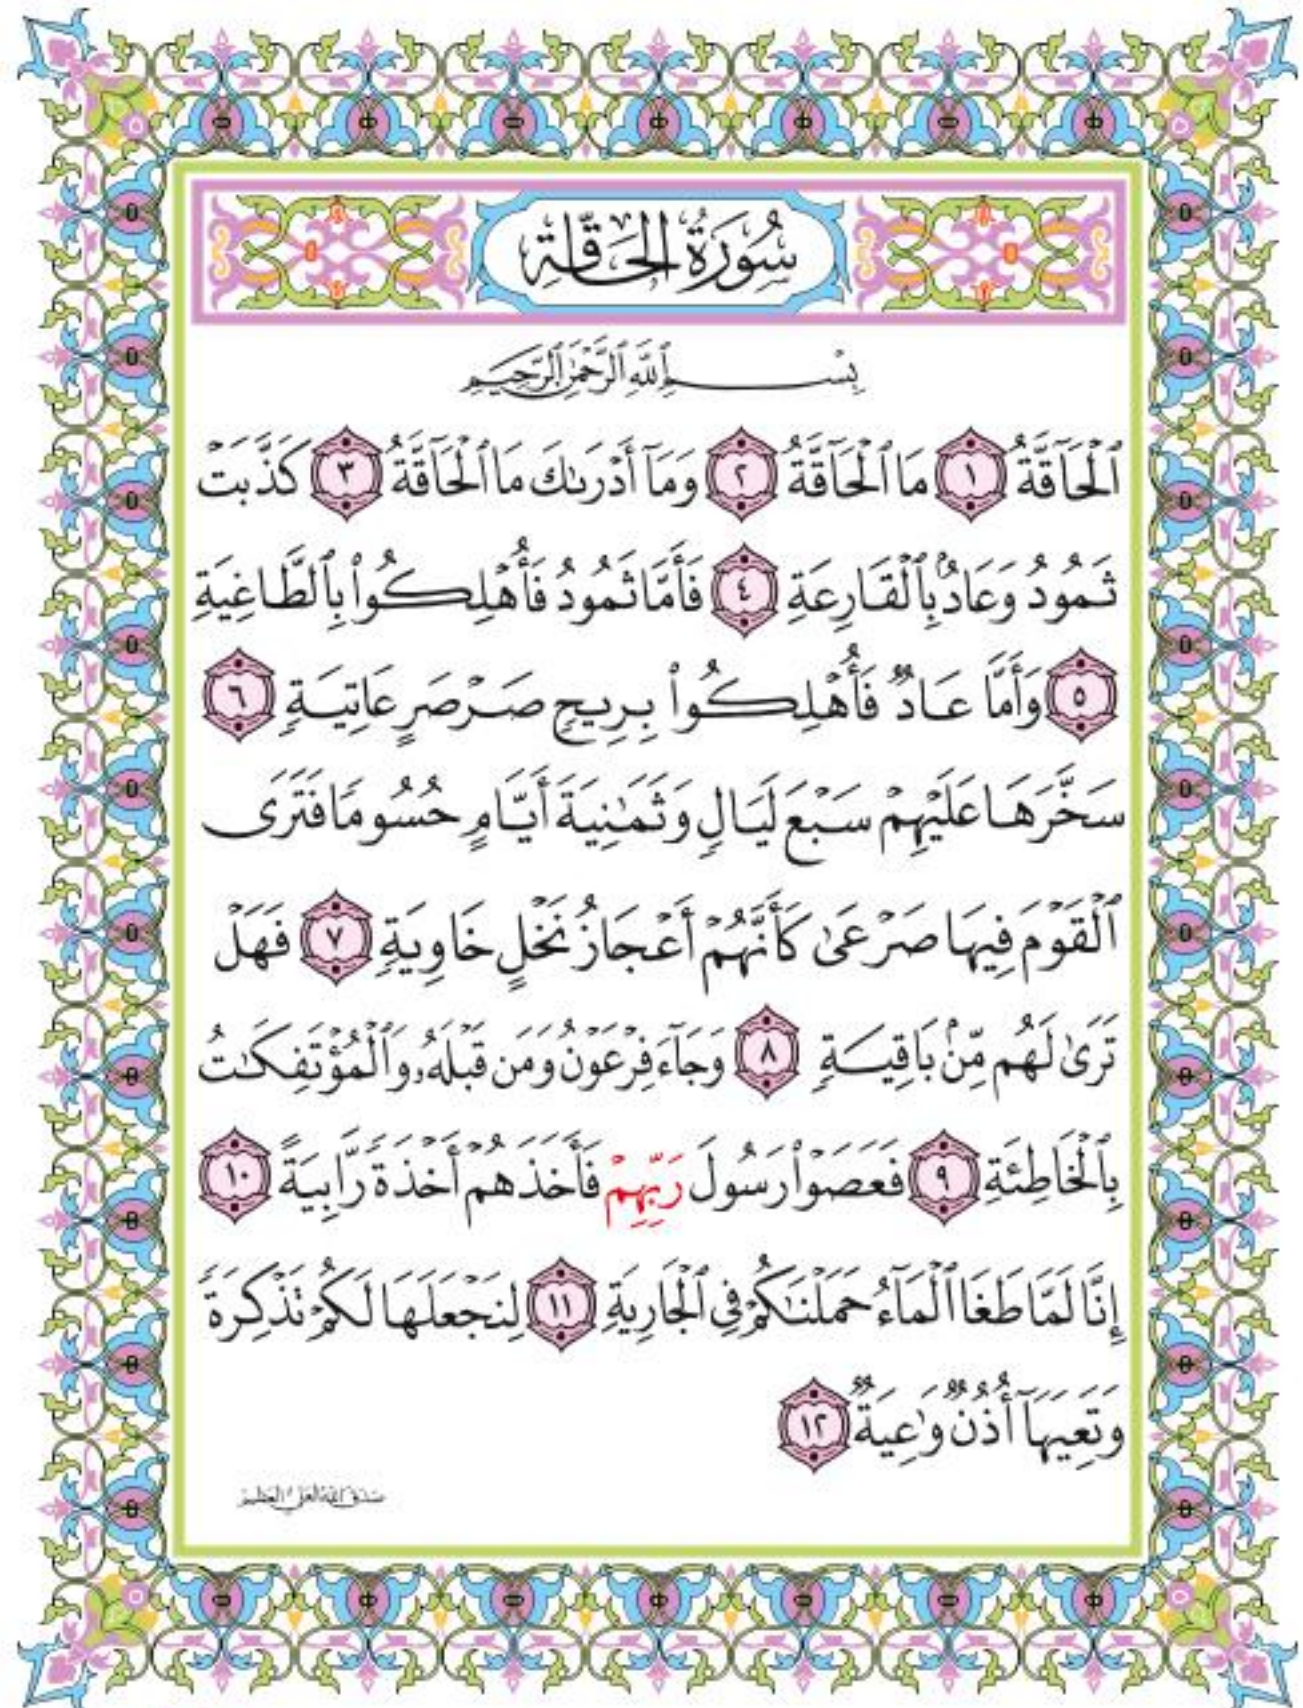 سُورَةُ الحَاقَّةِ
بِسْمِ ٱللَّهِ ٱلرَّحْمَٰنِ ٱلرَّحِيمِ
ٱلْحَآقَّةُ ١ مَا ٱلْحَآقَّةُ ٢ وَمَآ أَدْرَىٰكَ مَا ٱلْحَآقَّةُ ٣ كَذَّبَتْ
ثَمُودُ وَعَادُۢ بِٱلْقَارِعَةِ ٤ فَأَمَّا ثَمُودُ فَأُهْلِكُوا۟ بِٱلطَّاغِيَةِ
٥ وَأَمَّا عَادٌ فَأُهْلِكُوا۟ بِرِيحٍ صَرْصَرٍ عَاتِيَةٍ ٦
سَخَّرَهَا عَلَيْهِمْ سَبْعَ لَيَالٍ وَثَمَٰنِيَةَ أَيَّامٍ حُسُومًا فَتَرَى
ٱلْقَوْمَ فِيهَا صَرْعَىٰ كَأَنَّهُمْ أَعْجَازُ نَخْلٍ خَاوِيَةٍ ٧ فَهَلْ
تَرَىٰ لَهُم مِّنۢ بَاقِيَةٍ ٨ وَجَآءَ فِرْعَوْنُ وَمَن قَبْلَهُۥ وَٱلْمُؤْتَفِكَٰتُ
بِٱلْخَاطِئَةِ ٩ فَعَصَوْا۟ رَسُولَ رَبِّهِمْ فَأَخَذَهُمْ أَخْذَةً رَّابِيَةً ١٠
إِنَّا لَمَّا طَغَا ٱلْمَآءُ حَمَلْنَٰكُمْ فِى ٱلْجَارِيَةِ ١١ لِنَجْعَلَهَا لَكُمْ تَذْكِرَةً
وَتَعِيَهَآ أُذُنٌ وَٰعِيَةٌ ١٢
صدق الله العلي العظيم